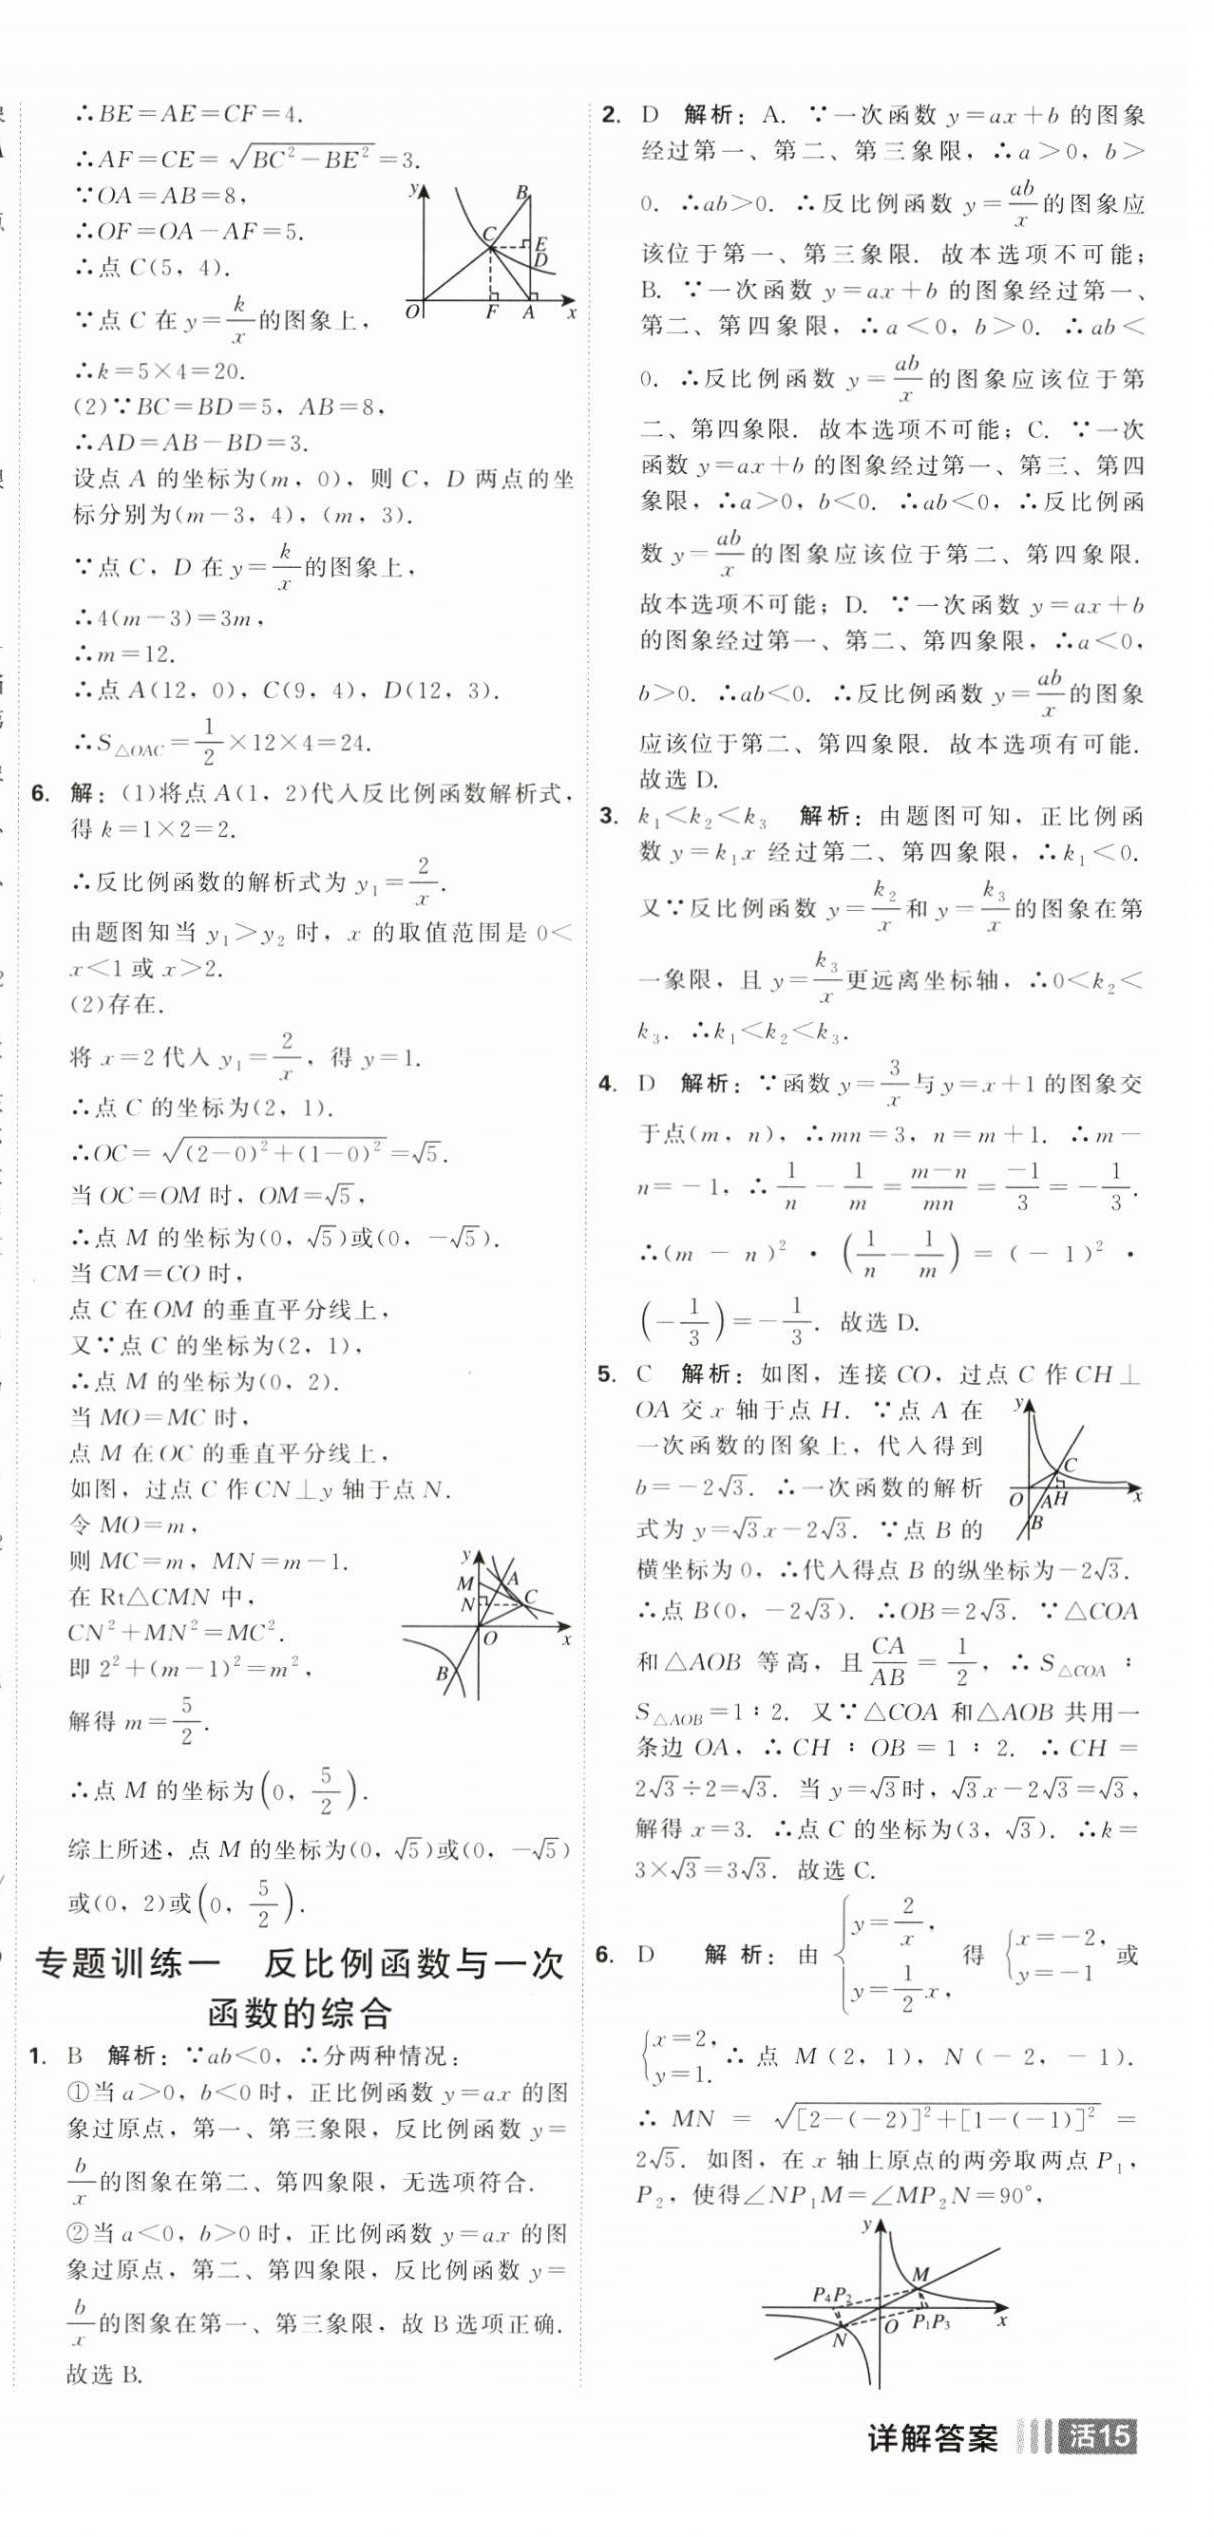 ∴BE=AE=CF=4.
∴AF=CE=√(BC²-BE²)=3.
∵OA=AB=8,
∴OF=OA-AF=5.
∴点 C(5, 4).
∵点 C 在 y=k/x的图象上,
∴k=5×4=20.
(2)∵BC=BD=5, AB=8,
∴AD=AB-BD=3.
设点 A 的坐标为(m, 0), 则 C, D 两点的坐
标分别为(m-3, 4), (m, 3).
∵点 C, D 在 y=k/x的图象上,
∴4(m-3)=3m,
∴m=12.
∴点 A(12, 0), C(9, 4), D(12, 3).
∴S△OAC=1/2×12×4=24.
y B C E D O F A x
6. 解: (1)将点 A(1, 2)代入反比例函数解析式,
得 k=1×2=2.
∴反比例函数的解析式为 y₁=2/x.
由题图知当 y₁>y₂ 时, x 的取值范围是 0<
x<1 或 x>2.
(2)存在.
将 x=2 代入 y₁=2/x, 得 y=1.
∴点 C 的坐标为(2, 1).
∴OC=√((2-0)²+(1-0)²)=√5.
当 OC=OM 时, OM=√5,
∴点 M 的坐标为(0, √5)或(0, -√5).
当 CM=CO 时,
点 C 在 OM 的垂直平分线上,
又∵点 C 的坐标为(2, 1),
∴点 M 的坐标为(0, 2).
当 MO=MC 时,
点 M 在 OC 的垂直平分线上,
如图, 过点 C 作 CN⊥y 轴于点 N.
令 MO=m,
则 MC=m, MN=m-1.
在 Rt△CMN 中,
CN²+MN²=MC².
即 2²+(m-1)²=m²,
解得 m=5/2.
y M A N C O x B
∴点 M 的坐标为(0, 5/2).
综上所述, 点 M 的坐标为(0, √5)或(0, -√5)
或(0, 2)或(0, 5/2).
专题训练一 反比例函数与一次
函数的综合
1. B 解析: ∵ab<0, ∴分两种情况:
①当 a>0, b<0 时, 正比例函数 y=ax 的图
象过原点, 第一、第三象限, 反比例函数 y=
b/x的图象在第二、第四象限, 无选项符合.
②当 a<0, b>0 时, 正比例函数 y=ax 的图
象过原点, 第二、第四象限, 反比例函数 y=
b/x的图象在第一、第三象限, 故 B 选项正确.
故选 B.
2. D 解析: A. ∵一次函数 y=ax+b 的图象
经过第一、第二、第三象限, ∴a>0, b>
0. ∴ab>0. ∴反比例函数 y=ab/x的图象应
该位于第一、第三象限. 故本选项不可能;
B. ∵一次函数 y=ax+b 的图象经过第一、
第二、第四象限, ∴a<0, b>0. ∴ab<
0. ∴反比例函数 y=ab/x的图象应该位于第
二、第四象限. 故本选项不可能; C. ∵一次
函数 y=ax+b 的图象经过第一、第三、第四
象限, ∴a>0, b<0. ∴ab<0, ∴反比例函
数 y=ab/x的图象应该位于第二、第四象限.
故本选项不可能; D. ∵一次函数 y=ax+b
的图象经过第一、第二、第四象限, ∴a<0,
b>0. ∴ab<0. ∴反比例函数 y=ab/x的图象
应该位于第二、第四象限. 故本选项有可能.
故选 D.
3. k₁<k₂<k₃ 解析: 由题图可知, 正比例函
数 y=k₁x 经过第二、第四象限, ∴k₁<0.
又∵反比例函数 y=k₂/x和 y=k₃/x的图象在第
一象限, 且 y=k₃/x更远离坐标轴, ∴0<k₂<
k₃. ∴k₁<k₂<k₃.
4. D 解析: ∵函数 y=3/x与 y=x+1 的图象交
于点(m, n), ∴mn=3, n=m+1. ∴m-
n=-1, ∴1/n-1/m=(m-n)/mn=-1/3=-1/3.
∴(m-n)²·(1/n-1/m)=(-1)²·
(-1/3)=-1/3. 故选 D.
5. C 解析: 如图, 连接 CO, 过点 C 作 CH⊥
OA 交 x 轴于点 H. ∵点 A 在
一次函数的图象上, 代入得到
b=-2√3. ∴一次函数的解析
式为 y=√3x-2√3. ∵点 B 的
y C O A H x B
横坐标为 0, ∴代入得点 B 的纵坐标为-2√3.
∴点 B(0, -2√3). ∴OB=2√3. ∵△COA
和△AOB 等高, 且CA/AB=1/2, ∴S△COA∶
S△AOB=1∶2. 又∵△COA 和△AOB 共用一
条边 OA, ∴CH∶OB=1∶2. ∴CH=
2√3÷2=√3. 当 y=√3时, √3x-2√3=√3,
解得 x=3. ∴点 C 的坐标为(3, √3). ∴k=
3×√3=3√3. 故选 C.
6. D 解析: 由 {y=2/x, y=1/2x, 得 {x=-2, y=-1 或
{x=2, y=1. ∴点 M(2, 1), N(-2, -1).
∴MN=√([2-(-2)]²+[1-(-1)]²)=
2√5. 如图, 在 x 轴上原点的两旁取两点 P₁,
P₂, 使得∠NP₁M=∠MP₂N=90°,
y M P₄P₂ O P₁P₃ x N
详解答案 活15